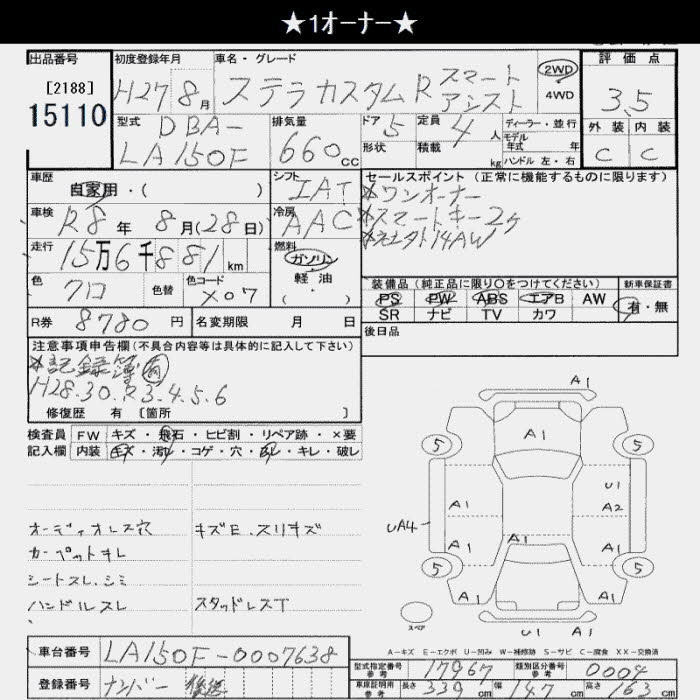 ★1オーナー★
出品番号
[2188]
15110
初度登録年月
H27 8月
車名・グレード
ステラカスタムR スマート
アシスト
2WD
4WD
評価点
3.5
外装 内装
C C
型式
DBA-
LA150F
排気量
660cc
ドア 5
形状
定員 4人
積載 kg
ディーラー・並行
モデル
年式 年
ハンドル 左・右
車歴
自家用・( )
シフト
IAT
車検
R8年 8月(28日)
冷房
AAC
走行
15万6千881km
燃料
ガソリン
軽油
( )
色
クロ
色替
色コード
X07
R券 8780円
名変期限 月 日
セールスポイント(正常に機能するものに限ります)
※ワンオーナー
※スマートキー2ケ
14AW
装備品(純正品に限り○をつけてください)
PS PW ABS エアB AW
SR ナビ TV カワ
新車保証書
有・無
後日品
注意事項申告欄(不具合内容等は具体的に記入して下さい)
※記録簿 有
H28.30.R3.4.5.6
修復歴 有 [箇所 ]
検査員
記入欄
FW キズ・飛石・ヒビ割・リペア跡・×要
内装 キズ・汚れ・コゲ・穴・スレ・キレ・破レ
オーディオレス穴
カーペットキレ
シートスレ.シミ
ハンドルスレ
キズE.スリキズ
スタッドレスT
A1
5
5
A1
U1
A1
A2
UA4
A1
A1
A1
5
5
A1
A1
U1
A1
スペア
A-キズ E-エクボ U-凹み W-補修跡 S-サビ C-腐食 XX-交換済
車台番号
LA150F-0007638
登録番号
ナンバー 後送
型式指定番号
参考
17967
類別区分番号
参考
0004
車庫証明用
参考
長さ 339cm
幅 147cm
高さ 163cm